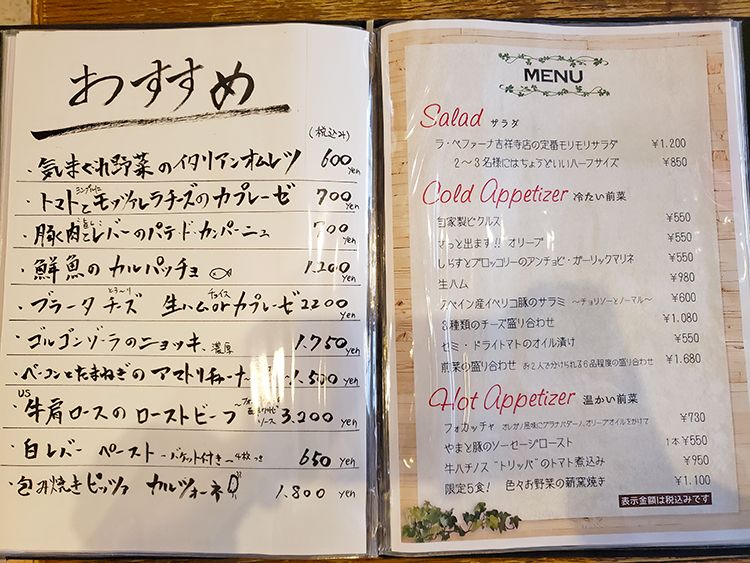 おすすめ
(税込み)
・気まぐれ野菜のイタリアンオムレツ 600yen
・トマトとモッツァレラチーズのカプレーゼ 700yen
・豚肉とレバーのパテ・ド・カンパーニュ 700yen
・鮮魚のカルパッチョ 1.200yen
・ブラータチーズ 生ハムorカプレーゼ 2200yen
・ゴルゴンゾーラのニョッキ 濃厚 1.750yen
・ベーコンとたまねぎのアマトリチャーナ 1,500yen
・US牛肩ロースのローストビーフ ソース 3.200yen
・白レバーペースト 〜バケット付き〜4枚つき 650yen
・包み焼きピッツァ カルツォーネ 1.800yen
MENU
Salad サラダ
ラ・ペファーナ吉祥寺店の定番モリモリサラダ ¥1.200
2〜3名様にはちょうどいいハーフサイズ ¥850
Cold Appetizer 冷たい前菜
自家製ピクルス ¥550
さっと出ます!! オリーブ ¥550
しらすとブロッコリーのアンチョビ・ガーリックマリネ ¥550
生ハム ¥980
スペイン産イベリコ豚のサラミ 〜チョリソーとノーマル〜 ¥600
3種類のチーズ盛り合わせ ¥1.080
セミ・ドライトマトのオイル漬け ¥550
前菜の盛り合わせ お2人で分けられる6品程度の盛り合わせ ¥1.680
Hot Appetizer 温かい前菜
フォカッチャ オレガノ風味にグラナパダーノ、オリーブオイルをかけて ¥730
やまと豚のソーセージロースト 1本¥550
牛ハチノス "トリッパ"のトマト煮込み ¥950
限定5食! 色々お野菜の薪窯焼き ¥1.100
表示金額は税込みです